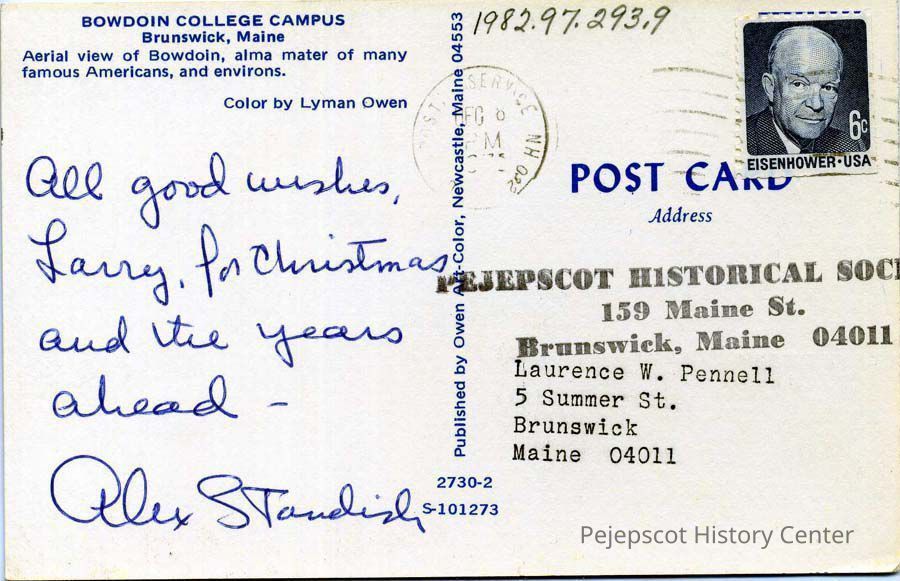 BOWDOIN COLLEGE CAMPUS
Brunswick, Maine
Aerial view of Bowdoin, alma mater of many
famous Americans, and environs.
Color by Lyman Owen
All good wishes,
Larry, for Christmas
and the years
ahead -
Alex Standish
Published by Owen Art-Color, Newcastle, Maine 04553
2730-2
S-101273
1982.97.293.9
SERVICE NH
PM
6c
EISENHOWER·USA
POST CARD
Address
PEJEPSCOT HISTORICAL SOCI
159 Maine St.
Brunswick, Maine 04011
Laurence W. Pennell
5 Summer St.
Brunswick
Maine 04011
Pejepscot History Center